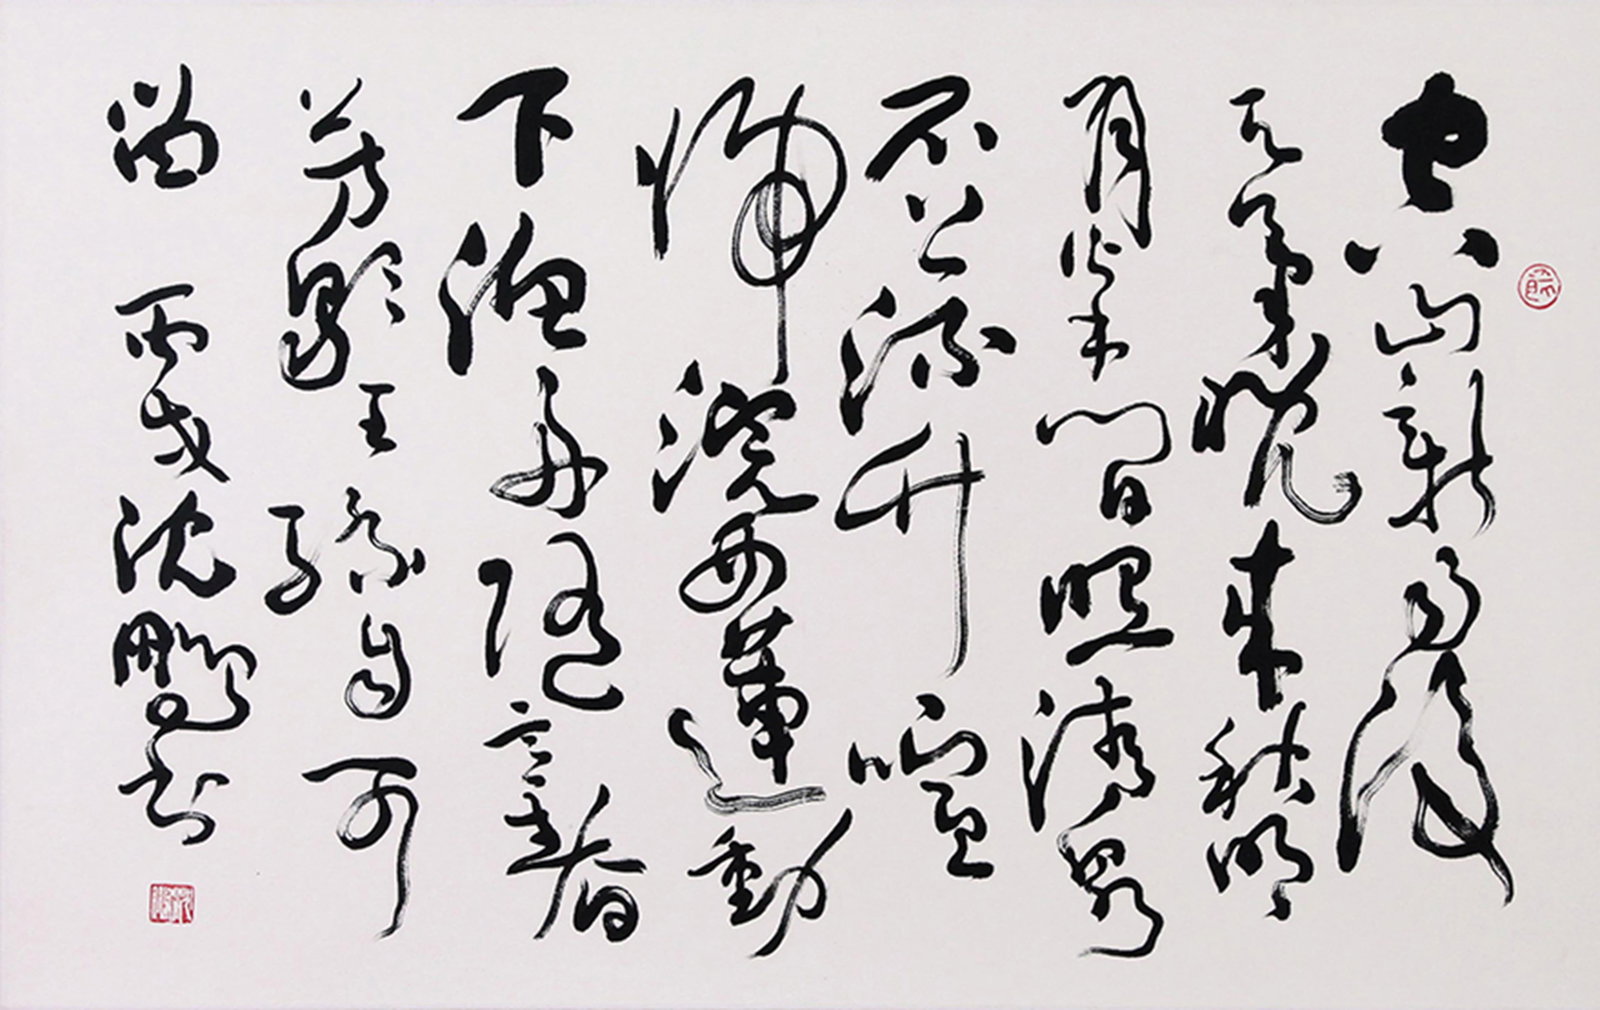 空山新雨後
天氣晚來秋明
月松間照清泉
石上流竹喧
歸浣女蓮動
下漁舟隨意春
芳歇王孫自可
留 丙戌沈鵬書